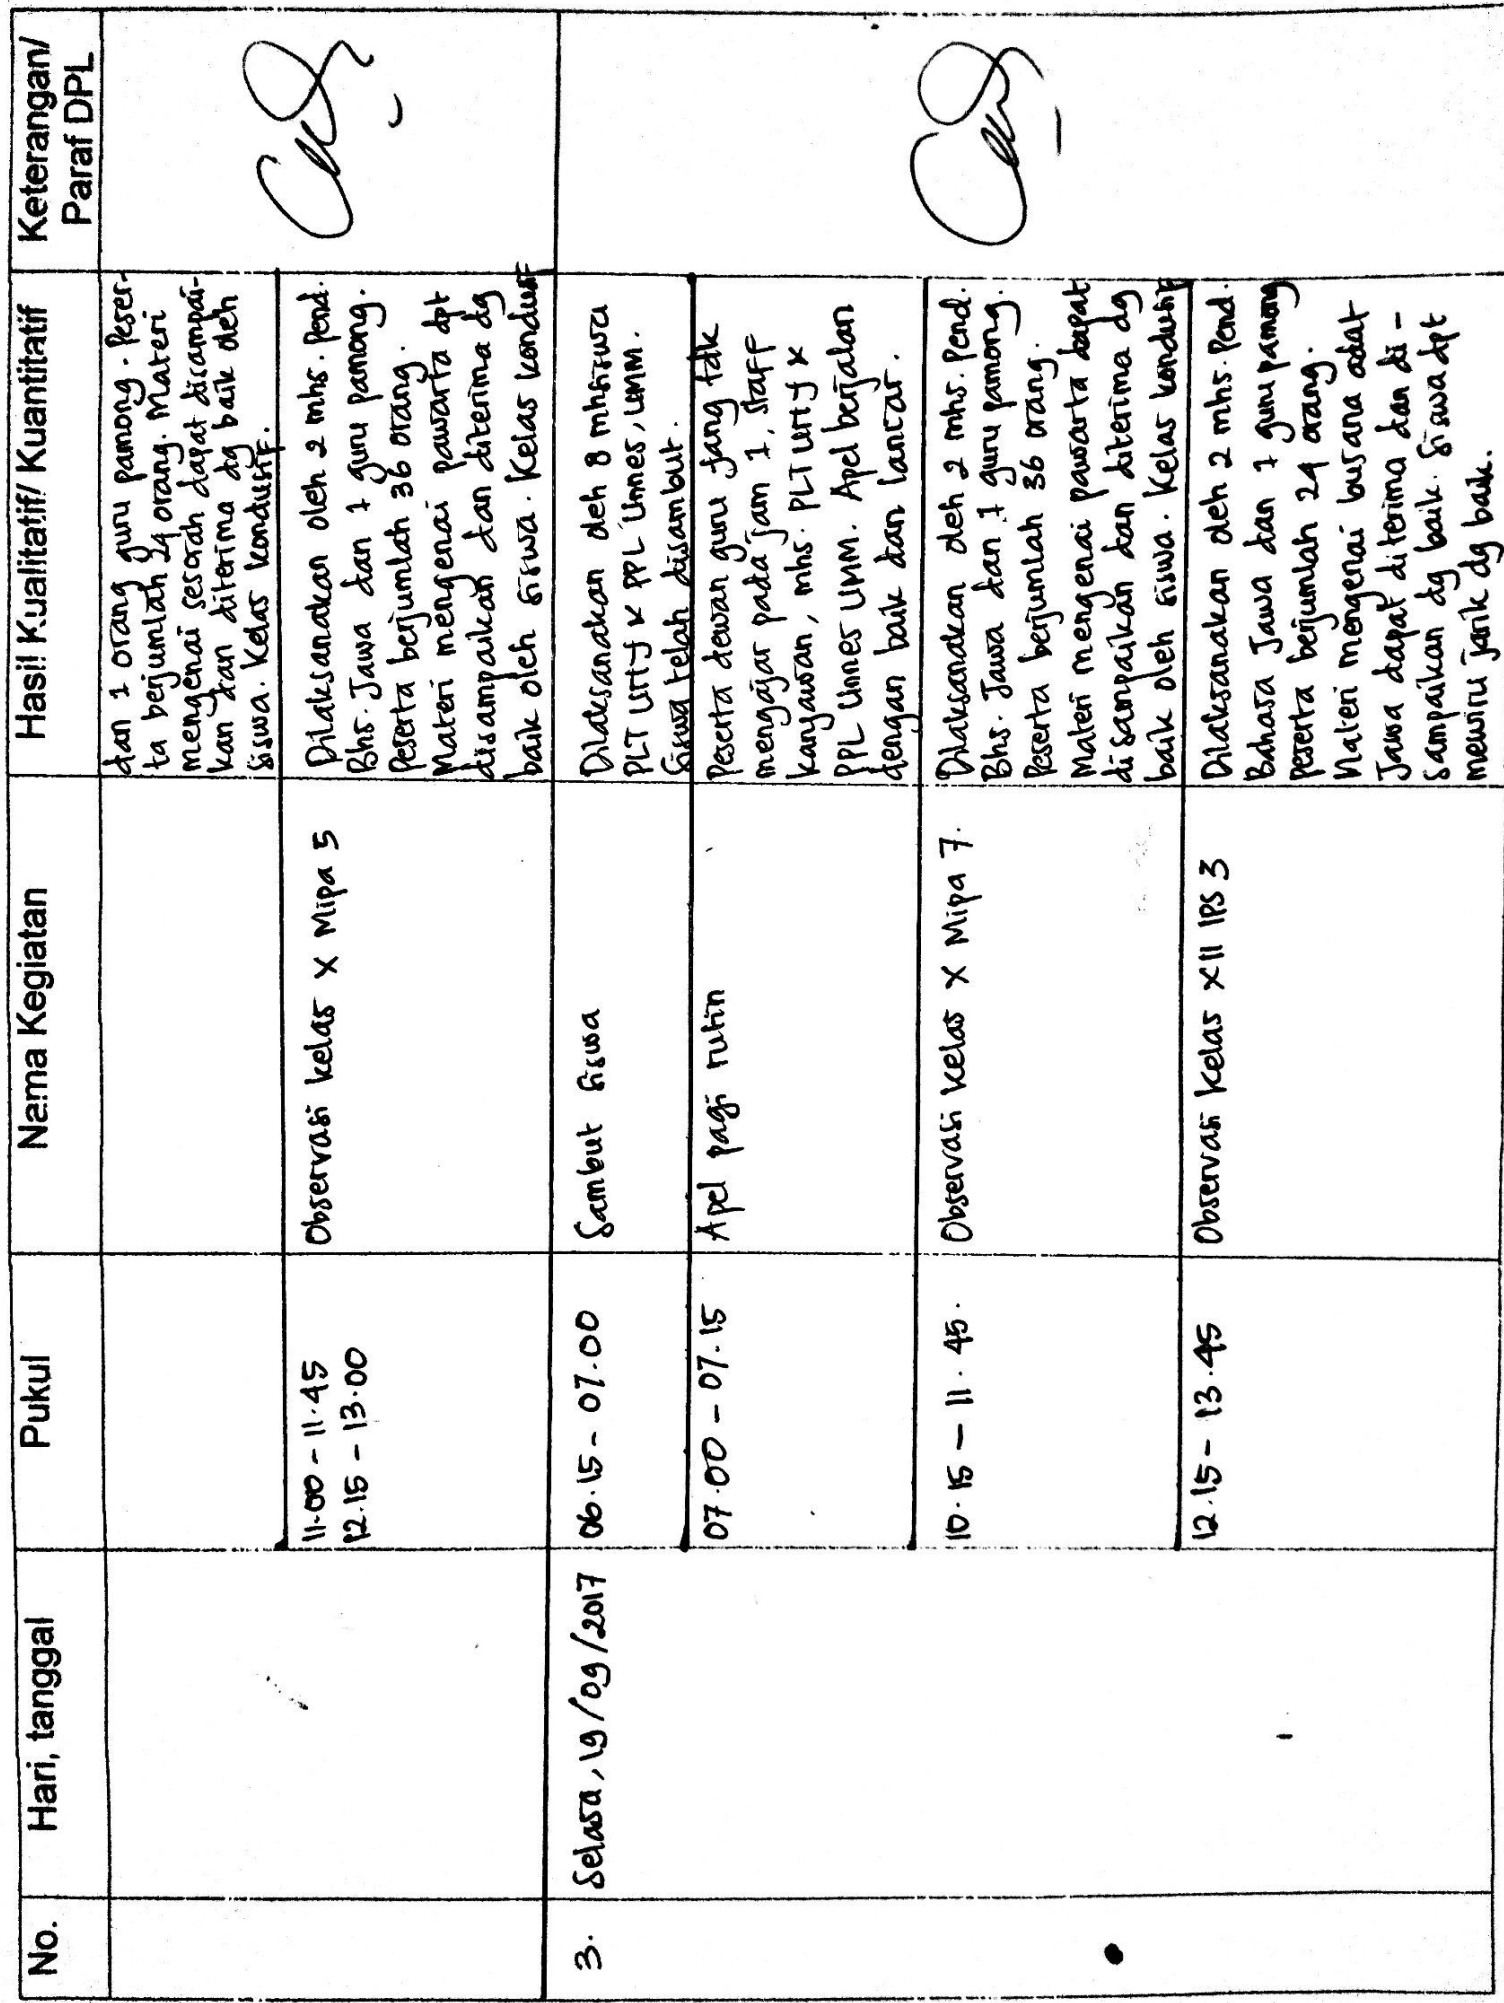 No.
Hari, tanggal
Pukul
Nama Kegiatan
Hasil Kualitatif/ Kuantitatif
Keterangan/
Paraf DPL
dan 1 orang guru pamong. Peser-
ta berjumlah 24 orang. Materi
mengenai sesorah dapat disampai-
kan dan diterima dg baik oleh
siswa. Kelas kondusif.
11.00 - 11.45
12.15 - 13.00
Observasi kelas X Mipa 5
Dilaksanakan oleh 2 mhs. Pend.
Bhs. Jawa dan 1 guru pamong.
Peserta berjumlah 36 orang.
Materi mengenai pawarta dpt
disampaikan dan diterima dg
baik oleh siswa. Kelas kondusif
3.
Selasa, 19/09/2017
06.15 - 07.00
Sambut siswa
Dilaksanakan oleh 8 mhsiswa
PLT UTY & PPL Unnes, UMM.
Siswa telah disambut.
07.00 - 07.15
Apel pagi rutin
Peserta dewan guru yang tdk
mengajar pada jam 1, staff
karyawan, mhs. PLT UTY &
PPL Unnes UMM. Apel berjalan
dengan baik dan lancar.
10.15 - 11.45.
Observasi kelas X Mipa 7.
Dilaksanakan oleh 2 mhs. Pend.
Bhs. Jawa dan 1 guru pamong.
Peserta berjumlah 36 orang.
Materi mengenai pawarta dapat
disampaikan dan diterima dg
baik oleh siswa. Kelas kondusif
12.15 - 13.45
Observasi kelas XII IPS 3
Dilaksanakan oleh 2 mhs. Pend.
Bahasa Jawa dan 1 guru pamong
peserta berjumlah 24 orang.
Materi mengenai busana adat
Jawa dapat diterima dan di-
sampaikan dg baik. Siswa dpt
mewiru jarik dg baik.